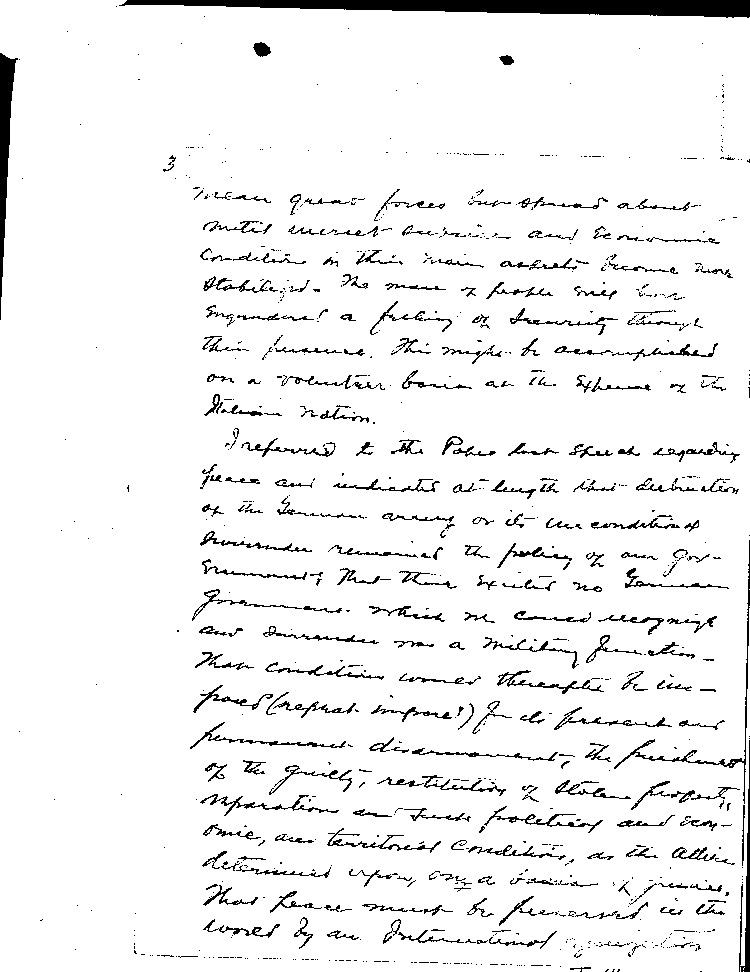 3
mean great forces but spread about
until unrest subsides and Economic
Condition in their main aspects become more
Stabilized. The mass of people will have
Engendered a feeling of Security through
their presence. This might be accomplished
on a volunteer basis at the Expense of the
Italian nation.
I referred to the Popes last speech regarding
peace and indicated at length that destruction
of the German army or its unconditional
surrender remained the policy of our Gov-
ernment; That there existed no German
Government which we could recognize
and surrender was a Military function -
That conditions would thereafter be im-
posed (repeat imposed) for its present and
permanent disarmament, the punishment
of the guilty, restitution of stolen property,
reparation and such political and econ-
omic, and territorial conditions, as the Allies
determined upon, on a basis of justice.
That peace must be preserved in the
world by an International organization